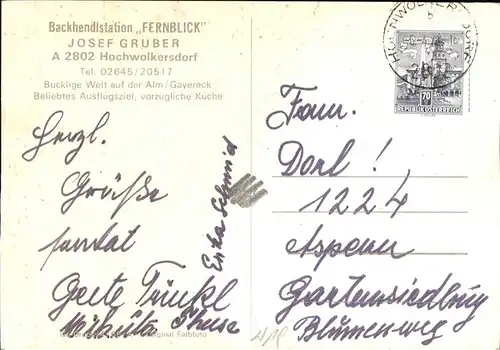 Backhendlstation „FERNBLICK"
JOSEF GRUBER
A 2802 Hochwolkersdorf
Tel. 02645/20517
Bucklige Welt auf der Alm/Gayereck
Beliebtes Ausflugsziel, vorzügliche Küche
Herzl.
Grüße
Grete Trinkl
Erika Schmied
HOCHWOLKERSDORF
b
70
REPUBLIK ÖSTERREICH
Fam.
Dorl!
1224
Aspern
Gartensiedlung
Blumenweg